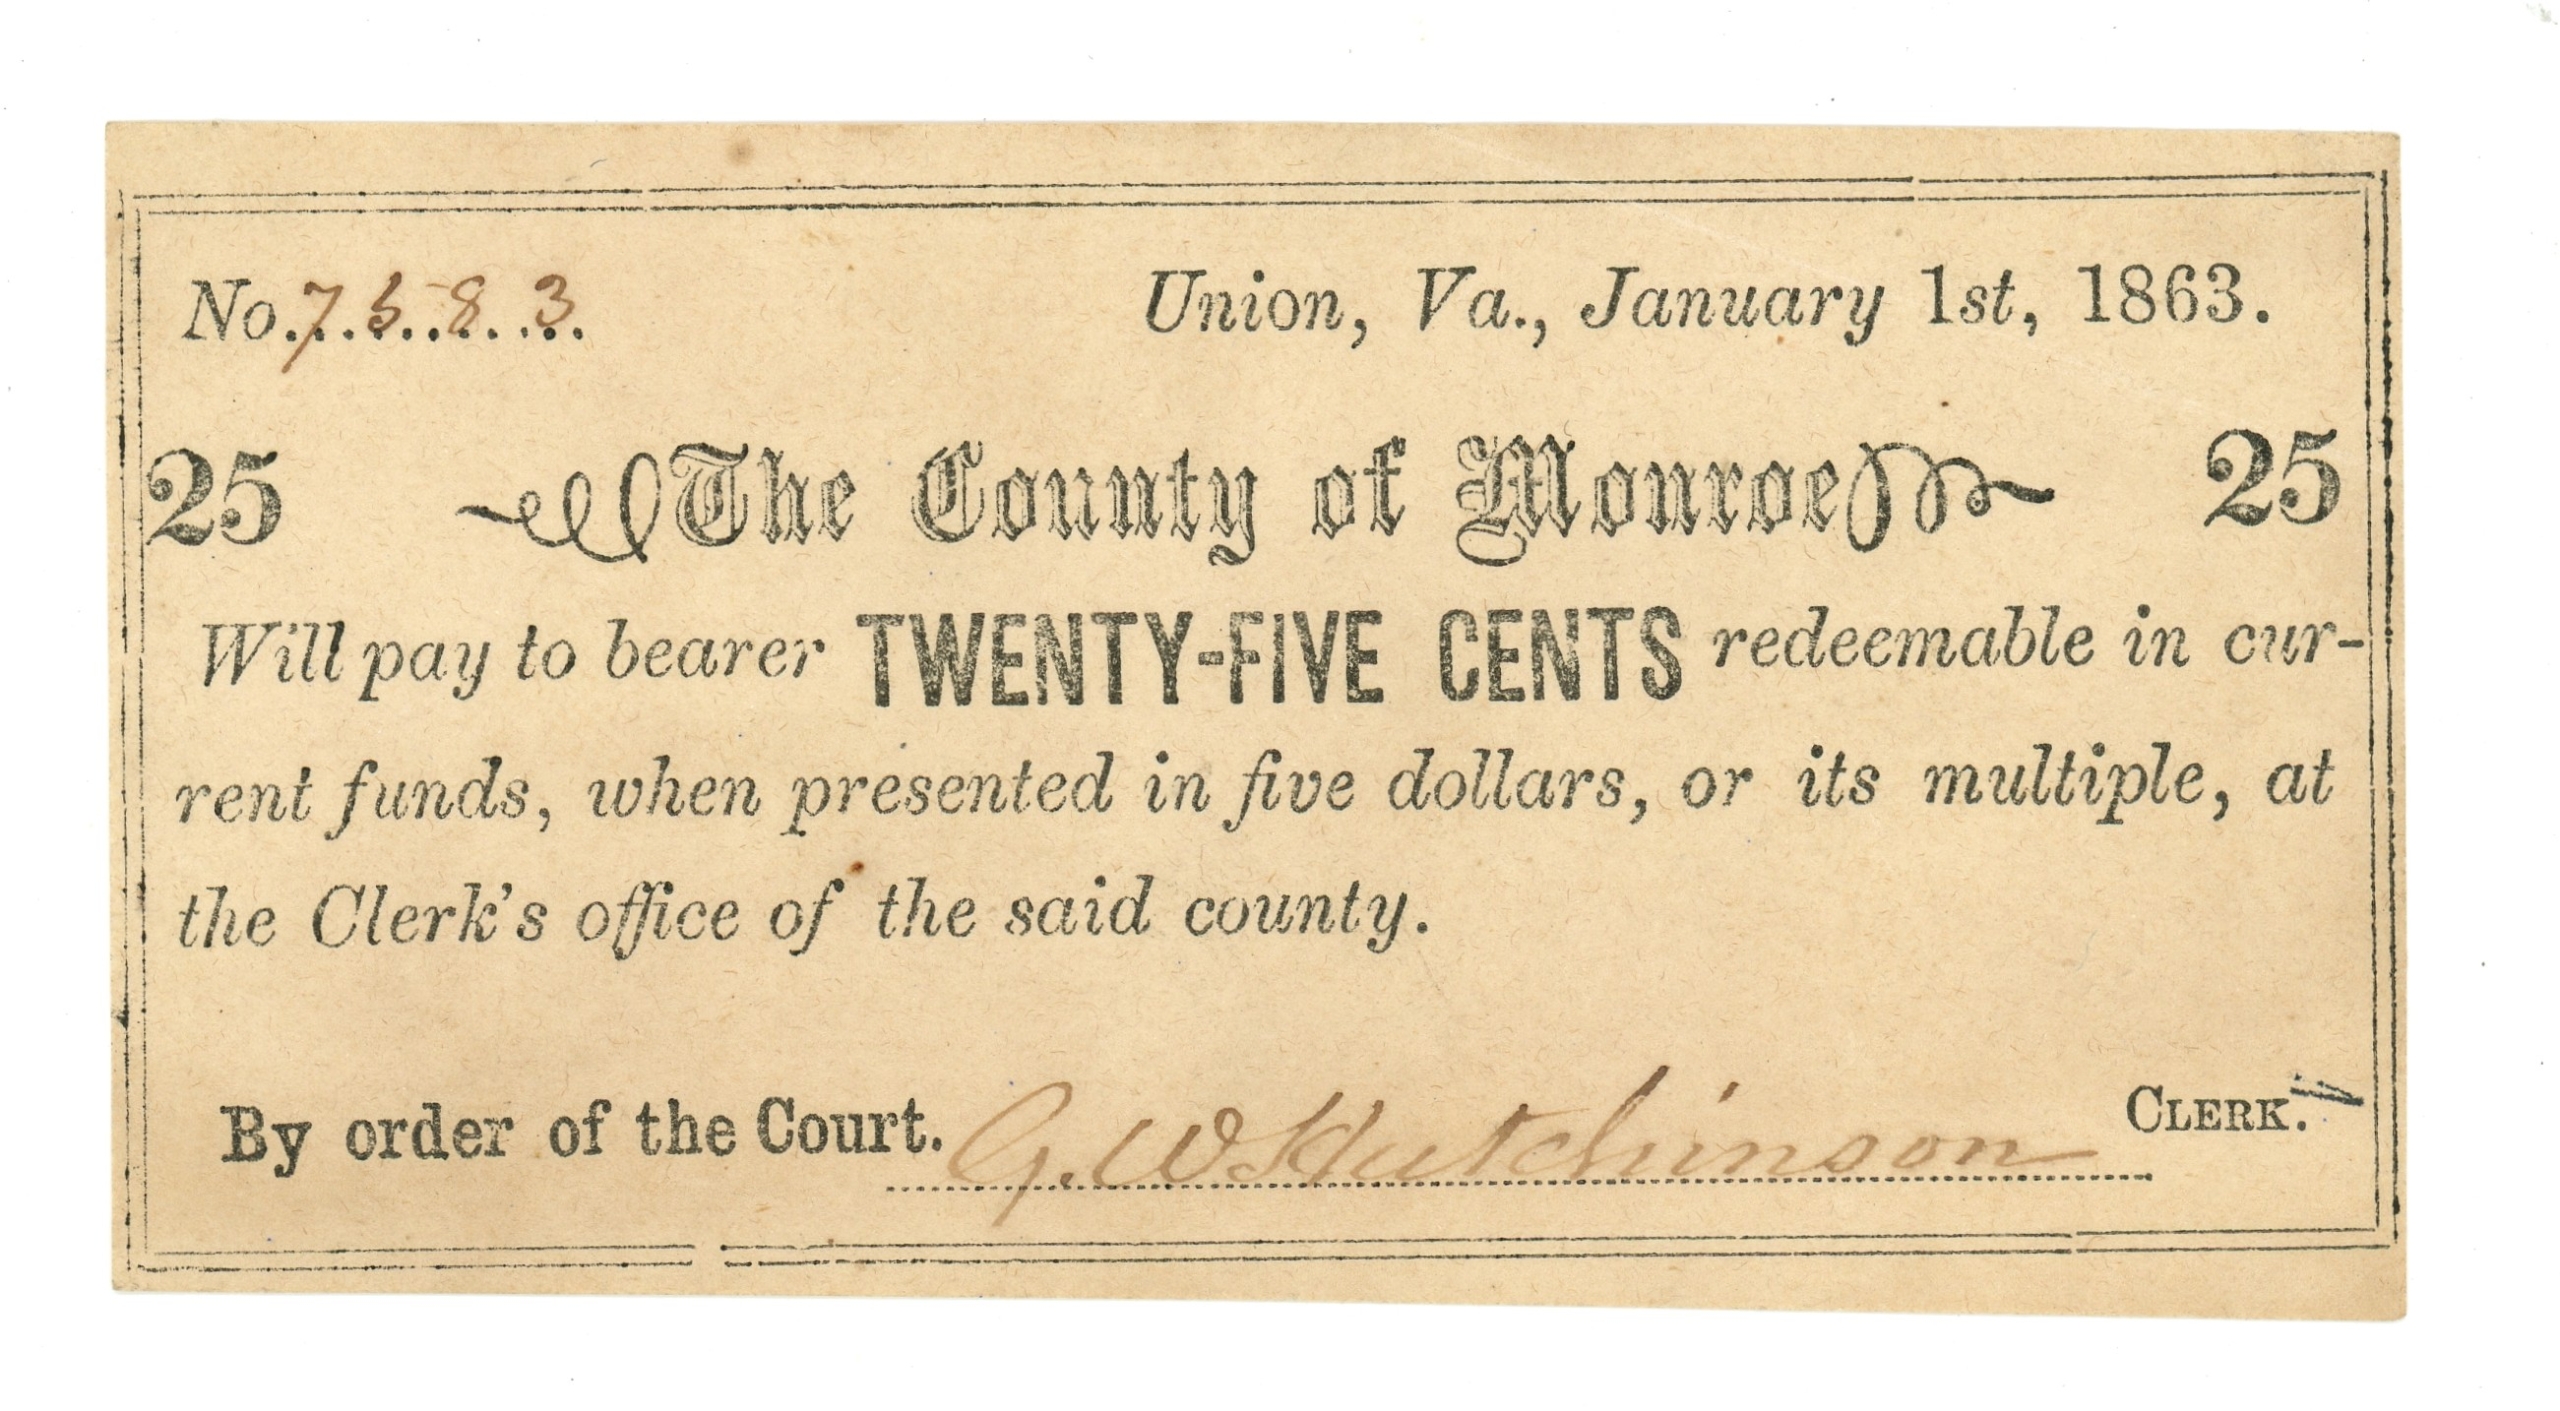 No. 7583 Union, Va., January 1st, 1863.
25 The County of Monroe 25
Will pay to bearer TWENTY-FIVE CENTS redeemable in cur-
rent funds, when presented in five dollars, or its multiple, at
the Clerk's office of the said county.
By order of the Court. G. W Hutchinson CLERK.